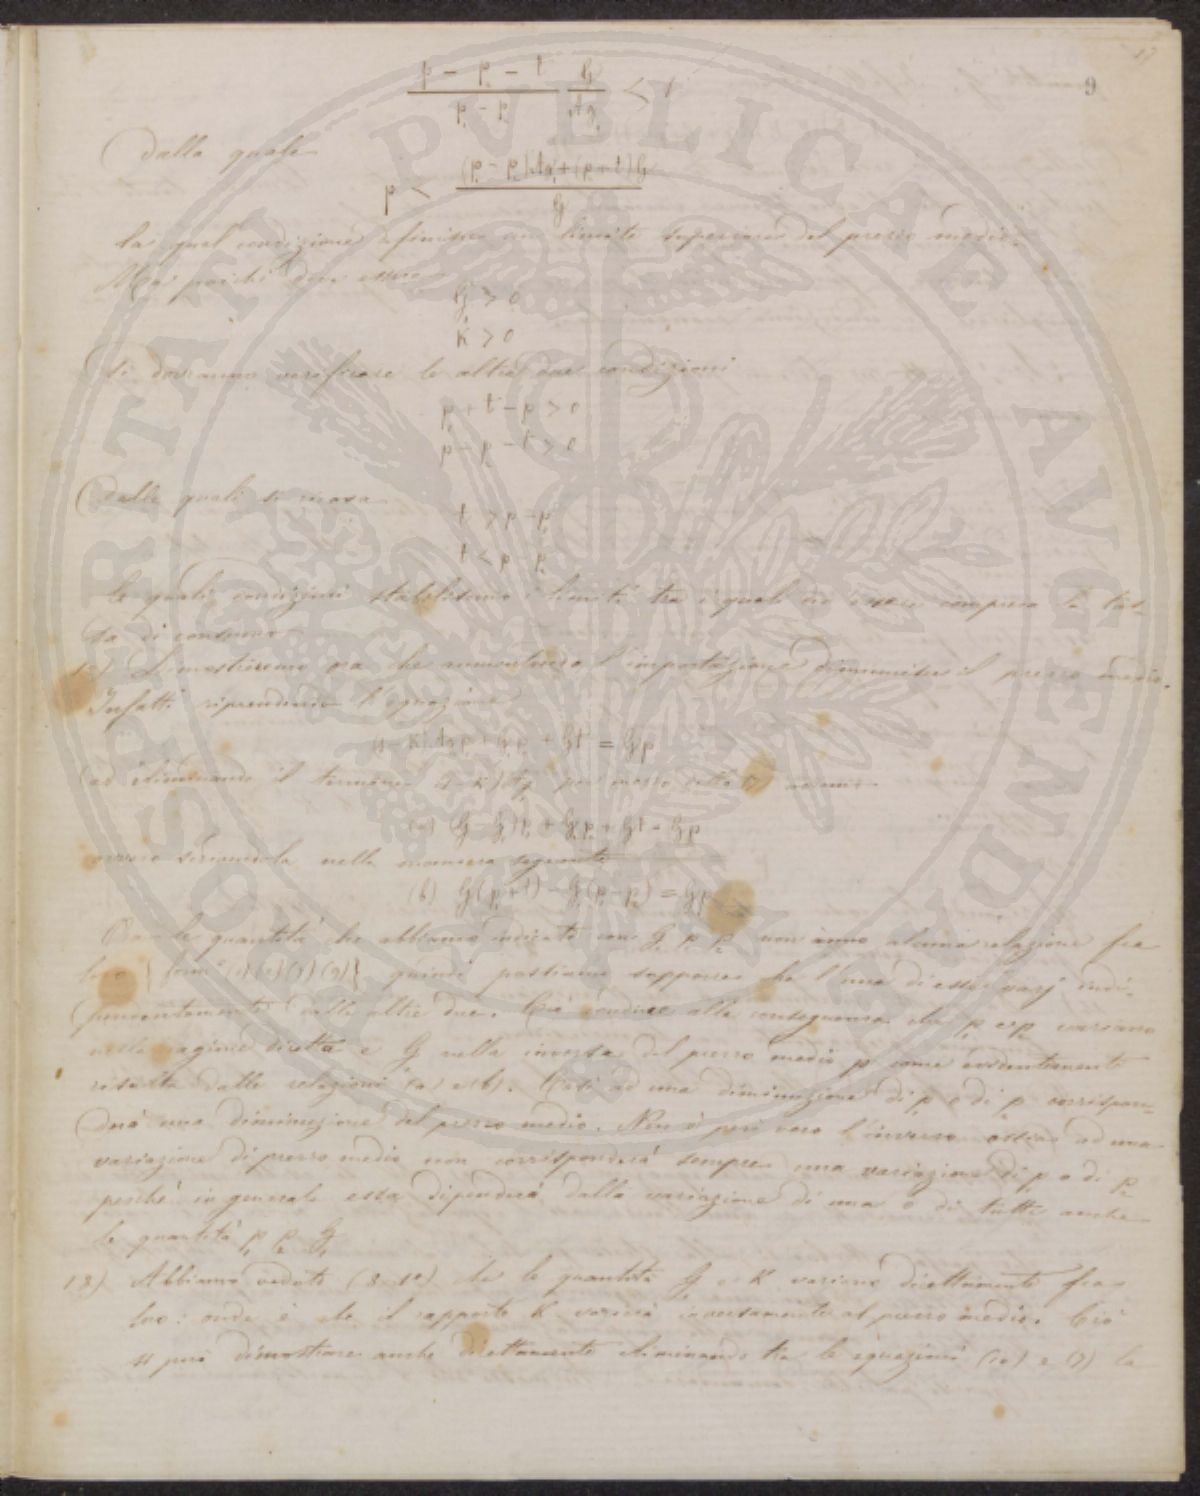 17
9
p - p₂ - t / p₁ - p₂ · G / Ag₁ < 1
Dalla quale
p < (p₁ - p₂)Ag₁ + (p₂ + t)G / G
la qual condizione definisce un limite superiore del prezzo medio.
Ma poichè deve essere
G > 0
K > 0
si dovranno verificare le altre due condizioni
p₁ + t - p > 0
p - p₂ - t > 0
Dalle quali si ricava
t > p - p₁
t < p - p₂
le quali condizioni stabiliscono i limiti tra i quali essere compresa la tas-
sa di consumo
12) Dimostriamo ora che aumentando l'importazione diminuisce il prezzo medio.
Infatti riprendiamo l'equazione
(1-K)Ag₁p₂ + G₁p₁ + Gt = Gp
ed eliminando il termine (1-K)Ag₁ per mezzo della (7) avremo
(a) (G-G₁)p₂ + G₁p₁ + Gt = Gp
ovvero scrivendola nella maniera seguente
(b) G(p₂+t) - G₁(p₂-p₁) = Gp
Ora le quantità che abbiamo indicate con G₁ p₁ p₂ non ànno alcuna relazione fra
loro quindi possiamo supporre che l'una di esse varj indi-
pendentemente dalle altre due. Ciò conduce alla conseguenza che p₁ e p₂ variano
nella ragione diretta e G nella inversa del prezzo medio p come evidentemente
risulta dalle relazioni (a) e (b). Così ad una diminuzione di p₁ e di p₂ corrispon-
derà una diminuzione del prezzo medio. Non è però vero l'inverso ossia ad una
variazione di prezzo medio non corrisponderà sempre una variazione di p₁ o di p₂
perchè in generale essa dipenderà dalla variazione di una o di tutte anche
le quantità p₁ p₂ G₁
18) Abbiamo veduto (8. 1º) che le quantità G₁ e K variano direttamente fra
loro: onde è che il rapporto K varierà inversamente al prezzo medio. Ciò
si può dimostrare anche direttamente eliminando tra le equazioni (10) e (7) la
PUBLICAE AUGENDAE
PROSPERITATI